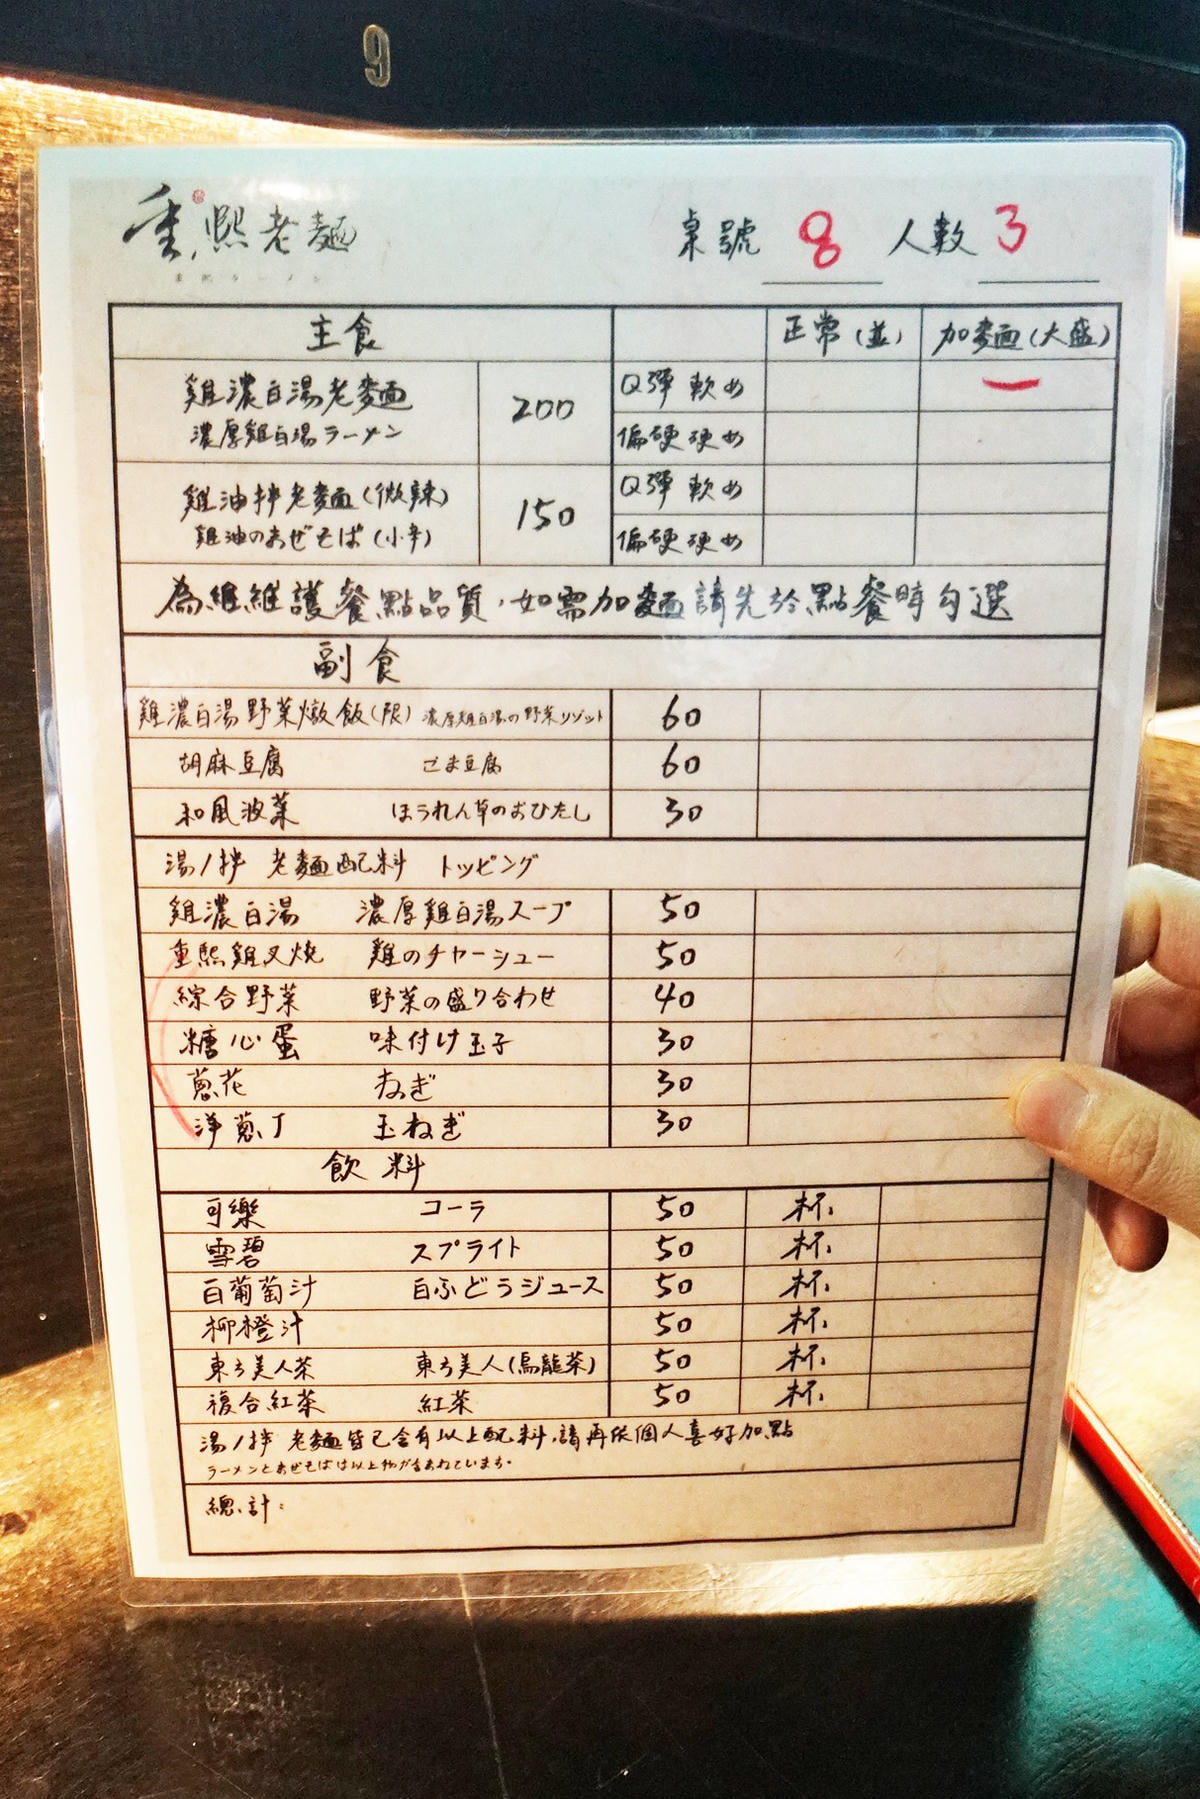 9
重熙老麵
桌號 8 人數 3
主食 正常(並) 加麵(大盛)
雞濃白湯老麵 200 Q彈 軟め
濃厚雞白湯ラーメン 偏硬 硬め
雞油拌老麵(微辣) 150 Q彈 軟め
雞油のあぜそば(小辛) 偏硬 硬め
為維維護餐點品質,如需加麵請先於點餐時勾選
副食
雞濃白湯野菜燉飯(限) 濃厚雞白湯の野菜リゾット 60
胡麻豆腐 ごま豆腐 60
和風波菜 ほうれん草のおひたし 30
湯/拌 老麵配料 トッピング
雞濃白湯 濃厚雞白湯スープ 50
重熙雞叉燒 雞のチャーシュー 50
綜合野菜 野菜の盛り合わせ 40
糖心蛋 味付け玉子 30
蔥花 ねぎ 30
洋蔥丁 玉ねぎ 30
飲料
可樂 コーラ 50 杯
雪碧 スプライト 50 杯
白葡萄汁 白ぶどうジュース 50 杯
柳橙汁 50 杯
東方美人茶 東方美人(烏龍茶) 50 杯
複合紅茶 紅茶 50 杯
湯/拌 老麵皆已含有以上配料,請再依個人喜好加點
ラーメンとあぜそばは以上物が含まれています。
總計: